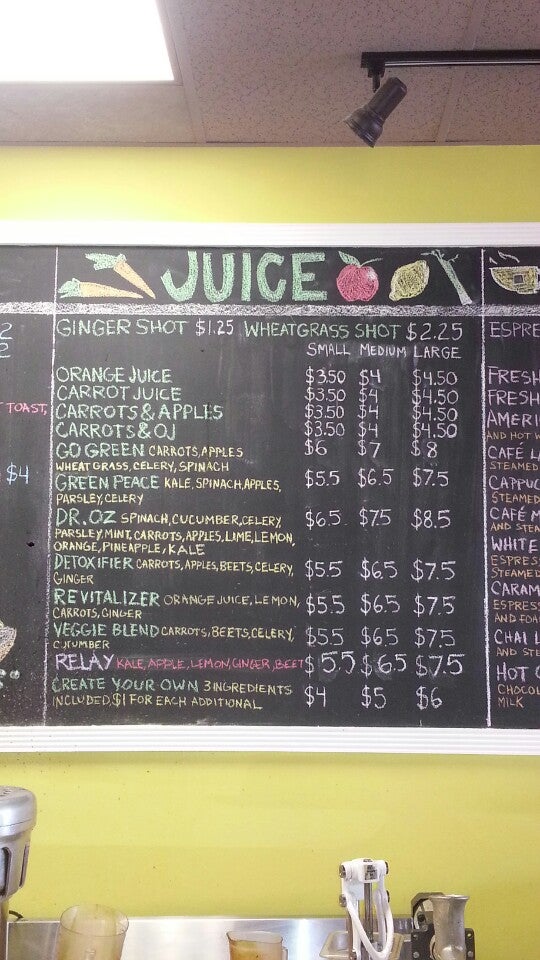 JUICE
GINGER SHOT $1.25 WHEATGRASS SHOT $2.25
SMALL MEDIUM LARGE
ORANGE JUICE $3.50 $4 $4.50
CARROT JUICE $3.50 $4 $4.50
CARROTS & APPLES $3.50 $4 $4.50
CARROTS & OJ $3.50 $4 $4.50
GO GREEN CARROTS, APPLES $6 $7 $8
WHEATGRASS, CELERY, SPINACH
GREEN PEACE KALE, SPINACH, APPLES, $5.5 $6.5 $7.5
PARSLEY, CELERY
DR. OZ SPINACH, CUCUMBER, CELERY, $6.5 $7.5 $8.5
PARSLEY, MINT, CARROTS, APPLES, LIME, LEMON,
ORANGE, PINEAPPLE, KALE
DETOXIFIER CARROTS, APPLES, BEETS, CELERY, $5.5 $6.5 $7.5
GINGER
REVITALIZER ORANGE JUICE, LEMON, $5.5 $6.5 $7.5
CARROTS, GINGER
VEGGIE BLEND CARROTS, BEETS, CELERY, $5.5 $6.5 $7.5
CUCUMBER
RELAY KALE, APPLE, LEMON, GINGER, BEET $5.5 $6.5 $7.5
CREATE YOUR OWN 3 INGREDIENTS $4 $5 $6
INCLUDED, $1 FOR EACH ADDITIONAL
2
2
TOAST,
$4
ESPRE
FRESH
FRESH
AMERI
AND HOT W
CAFÉ L
STEAMED
CAPPUC
STEAMED
CAFÉ M
AND STEA
WHITE
ESPRESS
STEAMED
CARAM
ESPRESS
AND FOA
CHAI L
AND STE
HOT C
CHOCOL
MILK